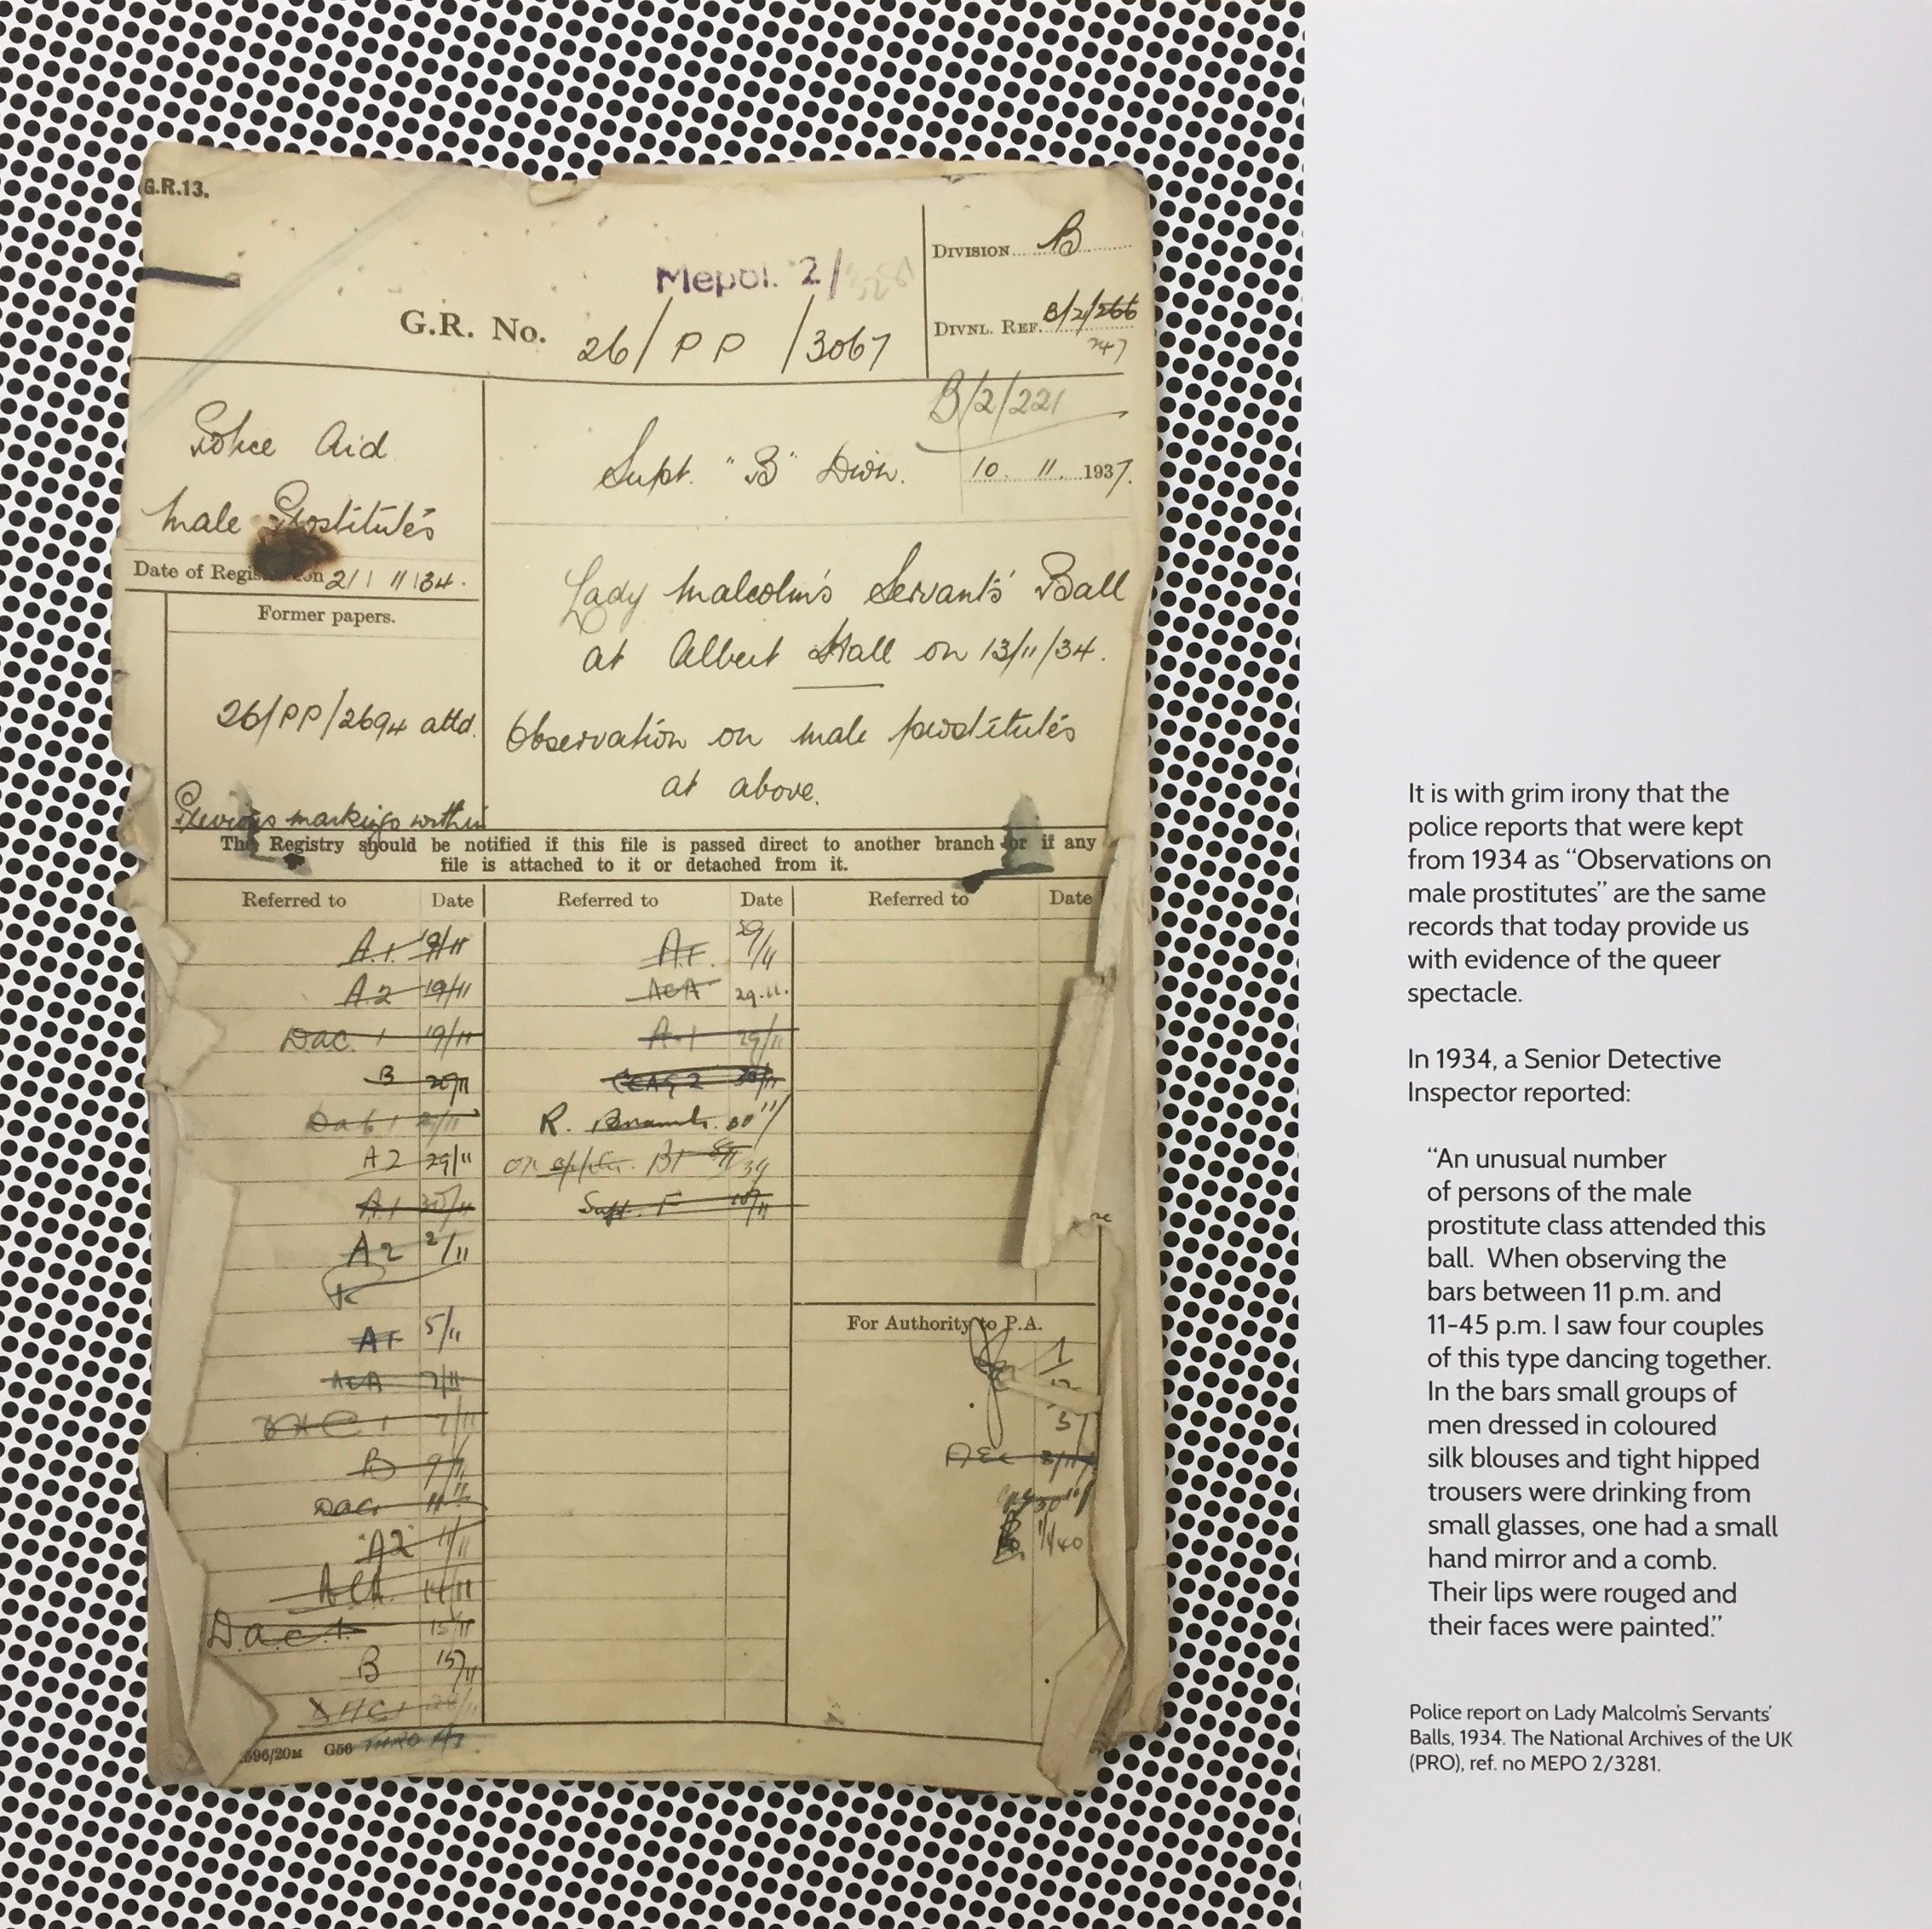 G.R.13.
Mepol. 2/3281
DIVISION B
G.R. No. 26/PP/3067
DIVNL. REF. B/2/266
247
B/2/221
Police Aid
Male Prostitutes
Date of Registration 21 11 34.
Supt. "B" Divn. 10. 11. 1937.
Lady Malcolm's Servants' Ball
at Albert Hall on 13/11/34.
Observation on male prostitutes
at above.
Former papers.
26/PP/2694 attd.
Previous markings within
The Registry should be notified if this file is passed direct to another branch or if any
file is attached to it or detached from it.
Referred to Date Referred to Date Referred to Date
A.1. 19/11
A.2 19/11
Dac. 1 19/11
B
A2 29/11
A.1 30/11
A2 2/11
A1 5/11
ACA 7/11
DAC 1 7/11
B 9/11
Dac1
"A2" 11/11
ACA 14/11
D.a.c.1. 15/11
B 15/11
DAC1
A1. 29/11
ACA 29.11.
A.1 29/11
R.
B1
Supt. F
For Authority to P.A.
596/20M G56
It is with grim irony that the
police reports that were kept
from 1934 as “Observations on
male prostitutes” are the same
records that today provide us
with evidence of the queer
spectacle.
In 1934, a Senior Detective
Inspector reported:
“An unusual number
of persons of the male
prostitute class attended this
ball. When observing the
bars between 11 p.m. and
11-45 p.m. I saw four couples
of this type dancing together.
In the bars small groups of
men dressed in coloured
silk blouses and tight hipped
trousers were drinking from
small glasses, one had a small
hand mirror and a comb.
Their lips were rouged and
their faces were painted.”
Police report on Lady Malcolm's Servants'
Balls, 1934. The National Archives of the UK
(PRO), ref. no MEPO 2/3281.